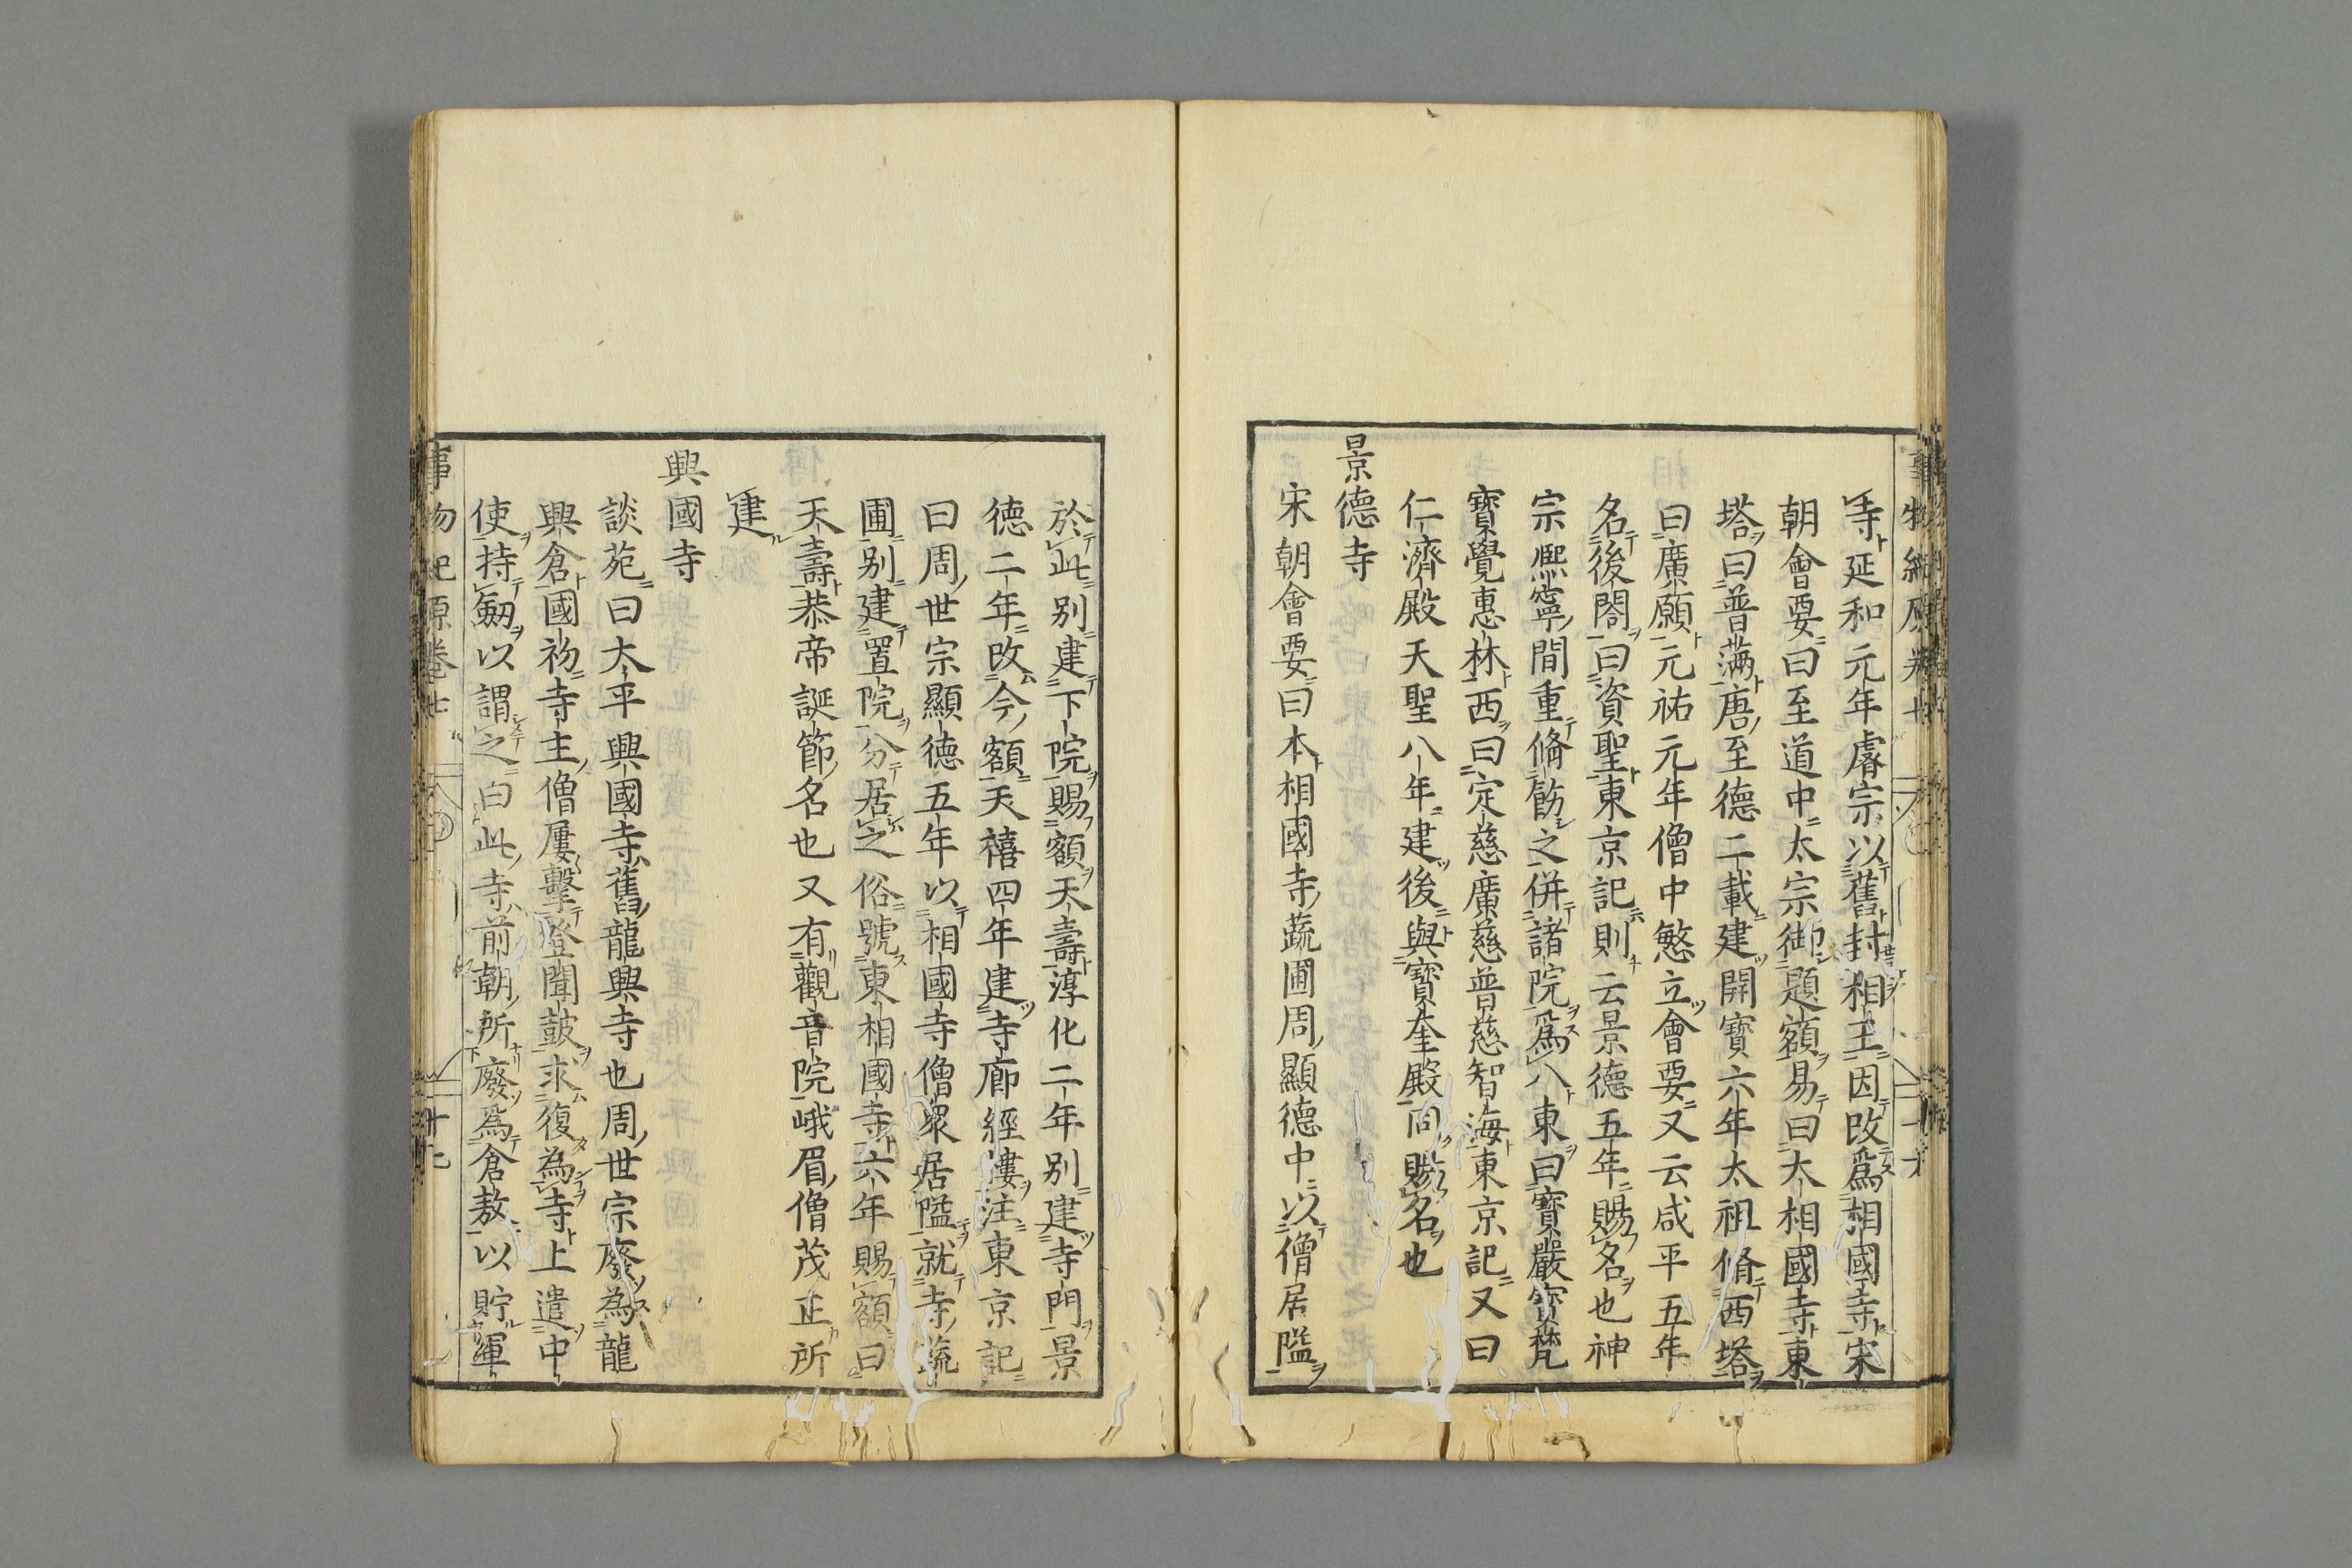 寺延和元年睿宗以舊封相王因改爲相國寺宋
朝會要曰至道中太宗御題額易曰大相國寺東
塔曰普滿唐至德二載建開寶六年太祖脩西塔
曰廣願元祐元年僧中慜立會要又云咸平五年
名後閣曰資聖東京記則云景德五年賜名也神
宗熈寧間重脩飭之併諸院爲八東曰寶嚴寶梵
寶覺惠林西曰定慈廣慈普慈智海東京記又曰
仁濟殿天聖八年建後與寶奎殿同賜名也
景德寺
宋朝會要曰本相國寺蔬圃周顯德中以僧居隘
於此別建下院賜額天壽淳化二年別建寺門景
德二年改今額天禧四年建寺廊經樓注東京記
曰周世宗顯德五年以相國寺僧衆居隘就寺蔬
圃別建置院分居之俗號東相國寺六年賜額曰
天壽恭帝誕節名也又有觀音院峨眉僧茂正所
建
興國寺
談苑曰大平興國寺舊龍興寺也周世宗廢為龍
興倉國初寺主僧屢擊登聞鼓求復為寺上遣中
使持劒以謂之曰此寺前朝所廢爲倉敖以貯軍
事物紀原卷七